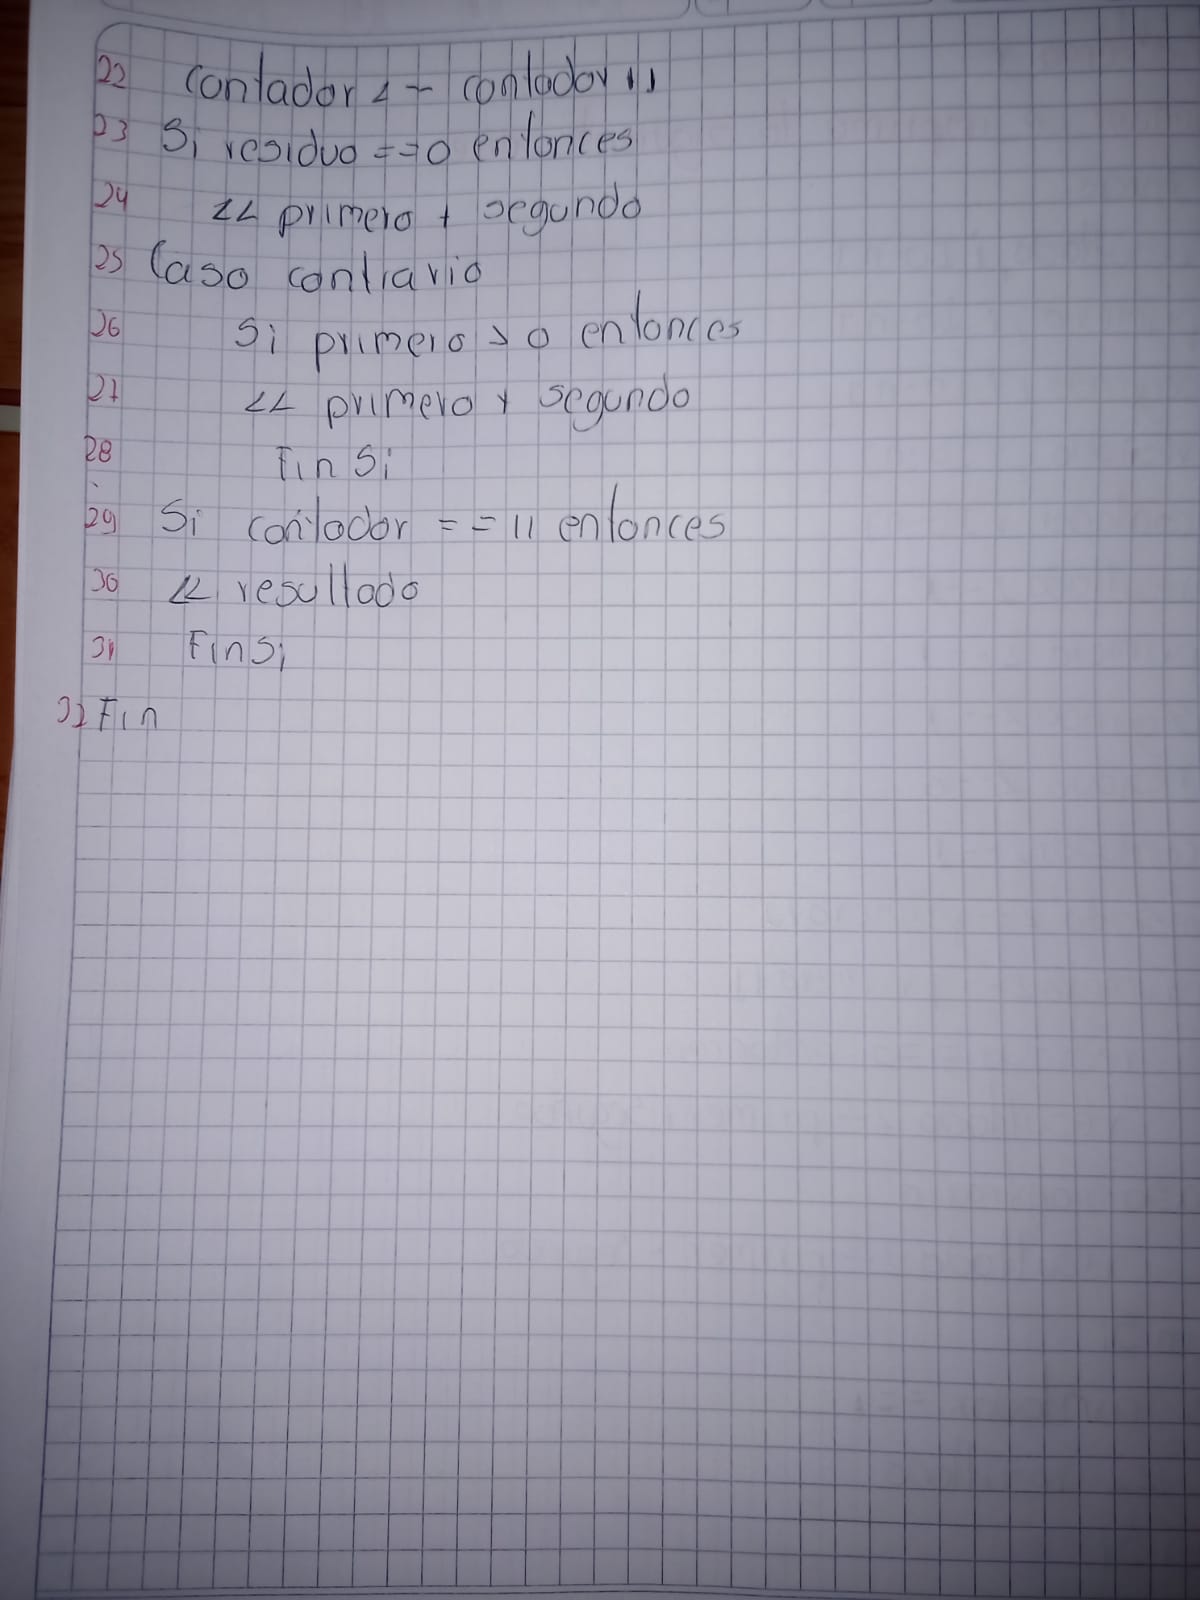 22 contador <- contador 11
23 Si residuo ==0 entonces
24 << primero + segundo
25 Caso contrario
26 Si primero > 0 entonces
27 << primero y segundo
28 Fin Si
29 Si contador == 11 entonces
30 << resultado
31 Fin Si
32 Fin